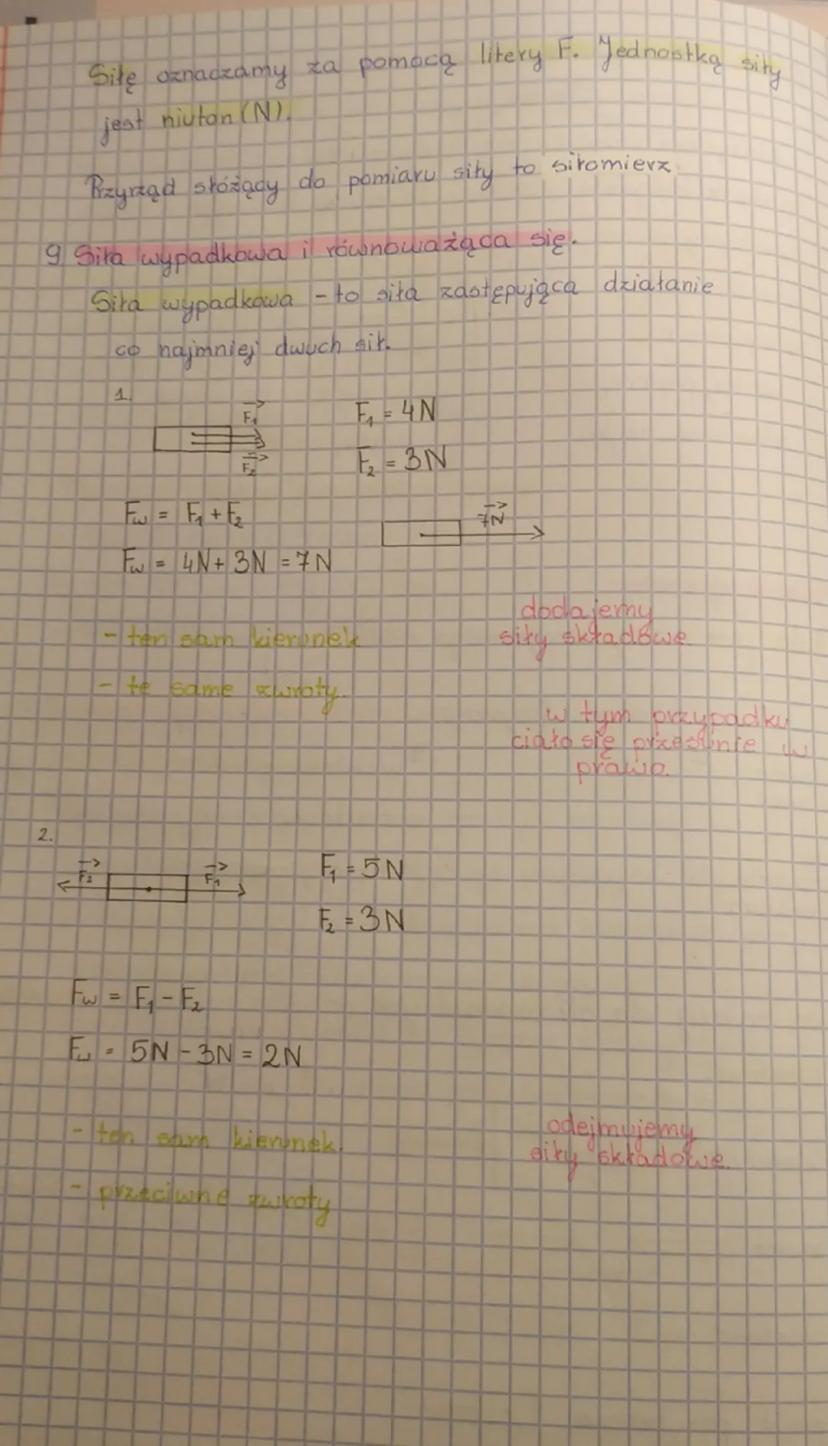 Siłę oznaczamy za pomocą litery F. Jednostką siły
jest niuton (N).
Przyrząd słóżący do pomiaru siły to siłomierz
9 Siła wypadkowa i równoważąca się.
Siła wypadkowa - to siła zastępująca działanie
co najmniej dwuch sił.
1.
F₁
F₂
F₁ = 4N
F₂ = 3N
Fw = F₁ + F₂
7N
Fw = 4N + 3N = 7N
- ten sam kierunek
dodajemy
siły składowe
- te same zwroty.
w tym przypadku
ciało się przesunie w
prawo.
2.
F₂
F₁
F₁ = 5N
F₂ = 3N
Fw = F₁ - F₂
Fw = 5N - 3N = 2N
- ten sam kierunek.
odejmujemy
siły składowe.
- przeciwne zwroty